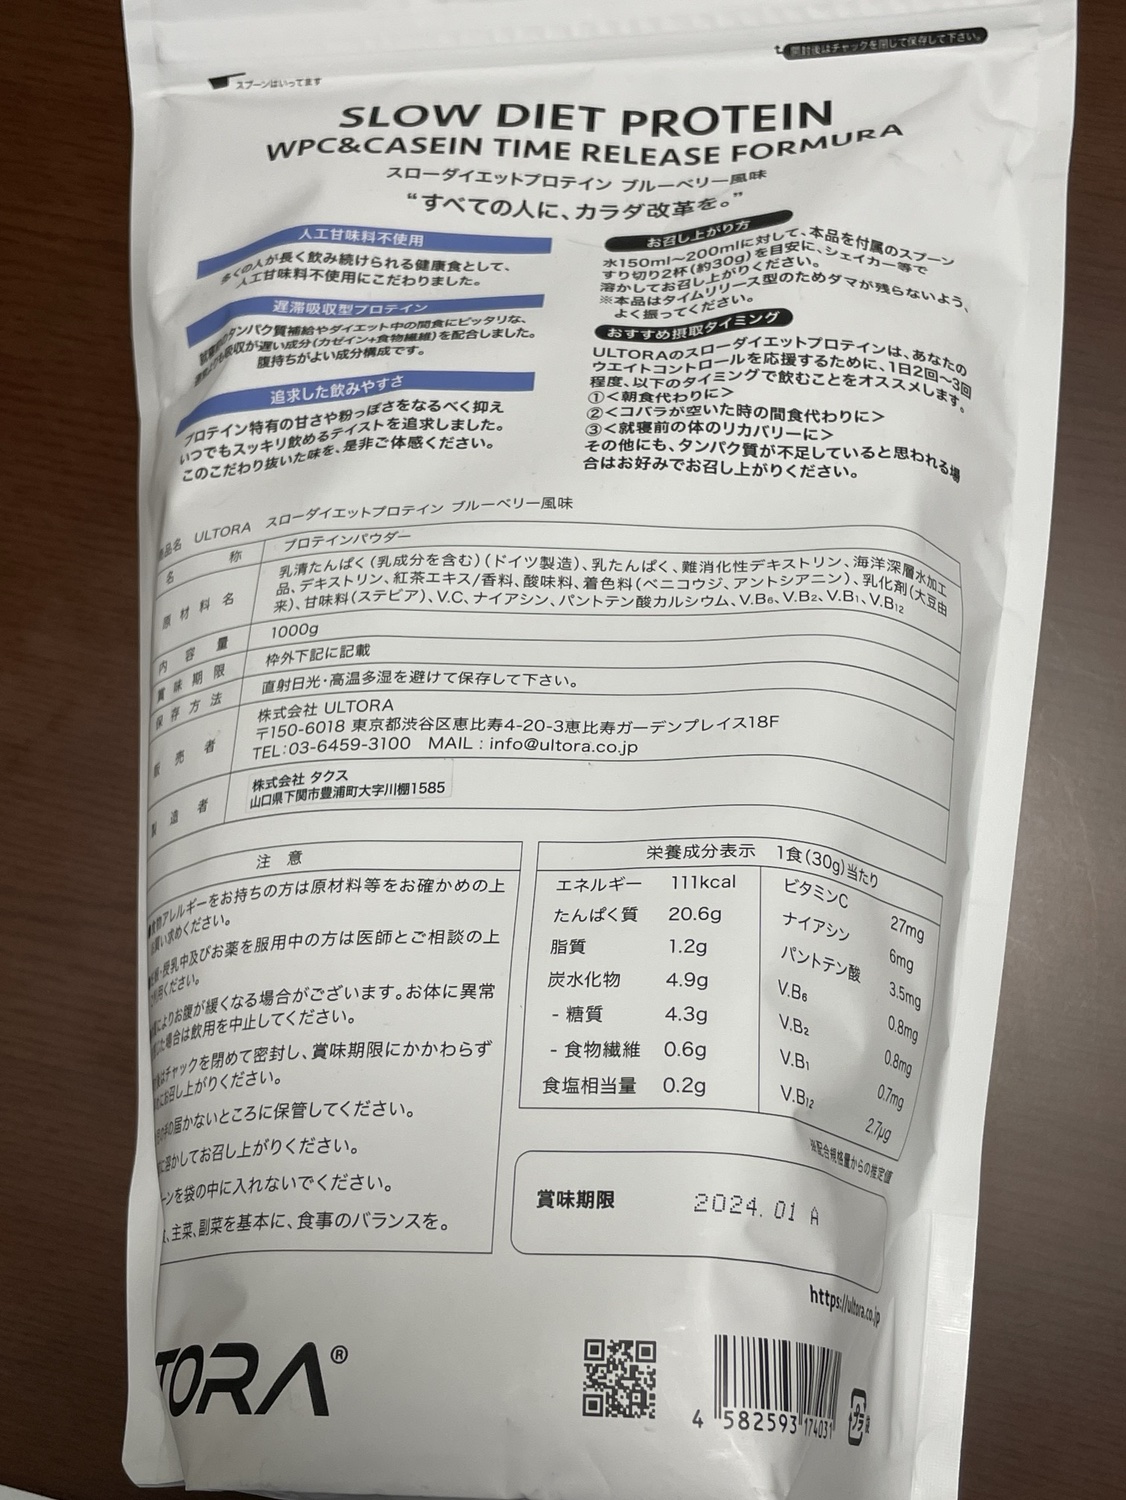 開封後はチャックを閉じて保存して下さい。
スプーンはいってます
SLOW DIET PROTEIN
WPC&CASEIN TIME RELEASE FORMURA
スローダイエットプロテイン ブルーベリー風味
“すべての人に、カラダ改革を。”
人工甘味料不使用
多くの人が長く飲み続けられる健康食として、
人工甘味料不使用にこだわりました。
遅滞吸収型プロテイン
タンパク質補給やダイエット中の間食にピッタリな、
吸収が遅い成分(カゼイン+食物繊維)を配合しました。
腹持ちがよい成分構成です。
追求した飲みやすさ
プロテイン特有の甘さや粉っぽさをなるべく抑え
いつでもスッキリ飲めるテイストを追求しました。
このこだわり抜いた味を、是非ご体感ください。
お召し上がり方
水150ml〜200mlに対して、本品を付属のスプーン
すり切り2杯(約30g)を目安に、シェイカー等で
溶かしてお召し上がりください。
※本品はタイムリリース型のためダマが残らないよう、
よく振ってください。
おすすめ摂取タイミング
ULTORAのスローダイエットプロテインは、あなたの
ウエイトコントロールを応援するために、1日2回〜3回
程度、以下のタイミングで飲むことをオススメします。
①<朝食代わりに>
②<コバラが空いた時の間食代わりに>
③<就寝前の体のリカバリーに>
その他にも、タンパク質が不足していると思われる場
合はお好みでお召し上がりください。
商品名 ULTORA スローダイエットプロテイン ブルーベリー風味
名称 プロテインパウダー
原材料名 乳清たんぱく(乳成分を含む)(ドイツ製造)、乳たんぱく、難消化性デキストリン、海洋深層水加工
品、デキストリン、紅茶エキス/香料、酸味料、着色料(ベニコウジ、アントシアニン)、乳化剤(大豆由
来)、甘味料(ステビア)、V.C、ナイアシン、パントテン酸カルシウム、V.B6、V.B2、V.B1、V.B12
内容量 1000g
賞味期限 枠外下記に記載
保存方法 直射日光・高温多湿を避けて保存して下さい。
販売者 株式会社 ULTORA
〒150-6018 東京都渋谷区恵比寿4-20-3恵比寿ガーデンプレイス18F
TEL:03-6459-3100 MAIL : info@ultora.co.jp
製造者 株式会社 タクス
山口県下関市豊浦町大字川棚1585
注意
食物アレルギーをお持ちの方は原材料等をお確かめの上
お買い求めください。
授乳中及びお薬を服用中の方は医師とご相談の上
ください。
によりお腹が緩くなる場合がございます。お体に異常
場合は飲用を中止してください。
はチャックを閉めて密封し、賞味期限にかかわらず
にお召し上がりください。
の届かないところに保管してください。
溶かしてお召し上がりください。
ーンを袋の中に入れないでください。
、主菜、副菜を基本に、食事のバランスを。
栄養成分表示 1食(30g)当たり
エネルギー 111kcal
たんぱく質 20.6g
脂質 1.2g
炭水化物 4.9g
- 糖質 4.3g
- 食物繊維 0.6g
食塩相当量 0.2g
ビタミンC 27mg
ナイアシン 6mg
パントテン酸 3.5mg
V.B6 0.8mg
V.B2 0.8mg
V.B1 0.7mg
V.B12 2.7μg
※配合規格量からの推定値
賞味期限 2024.01 A
https://ultora.co.jp
TORA®
4 582593 174031
プラ